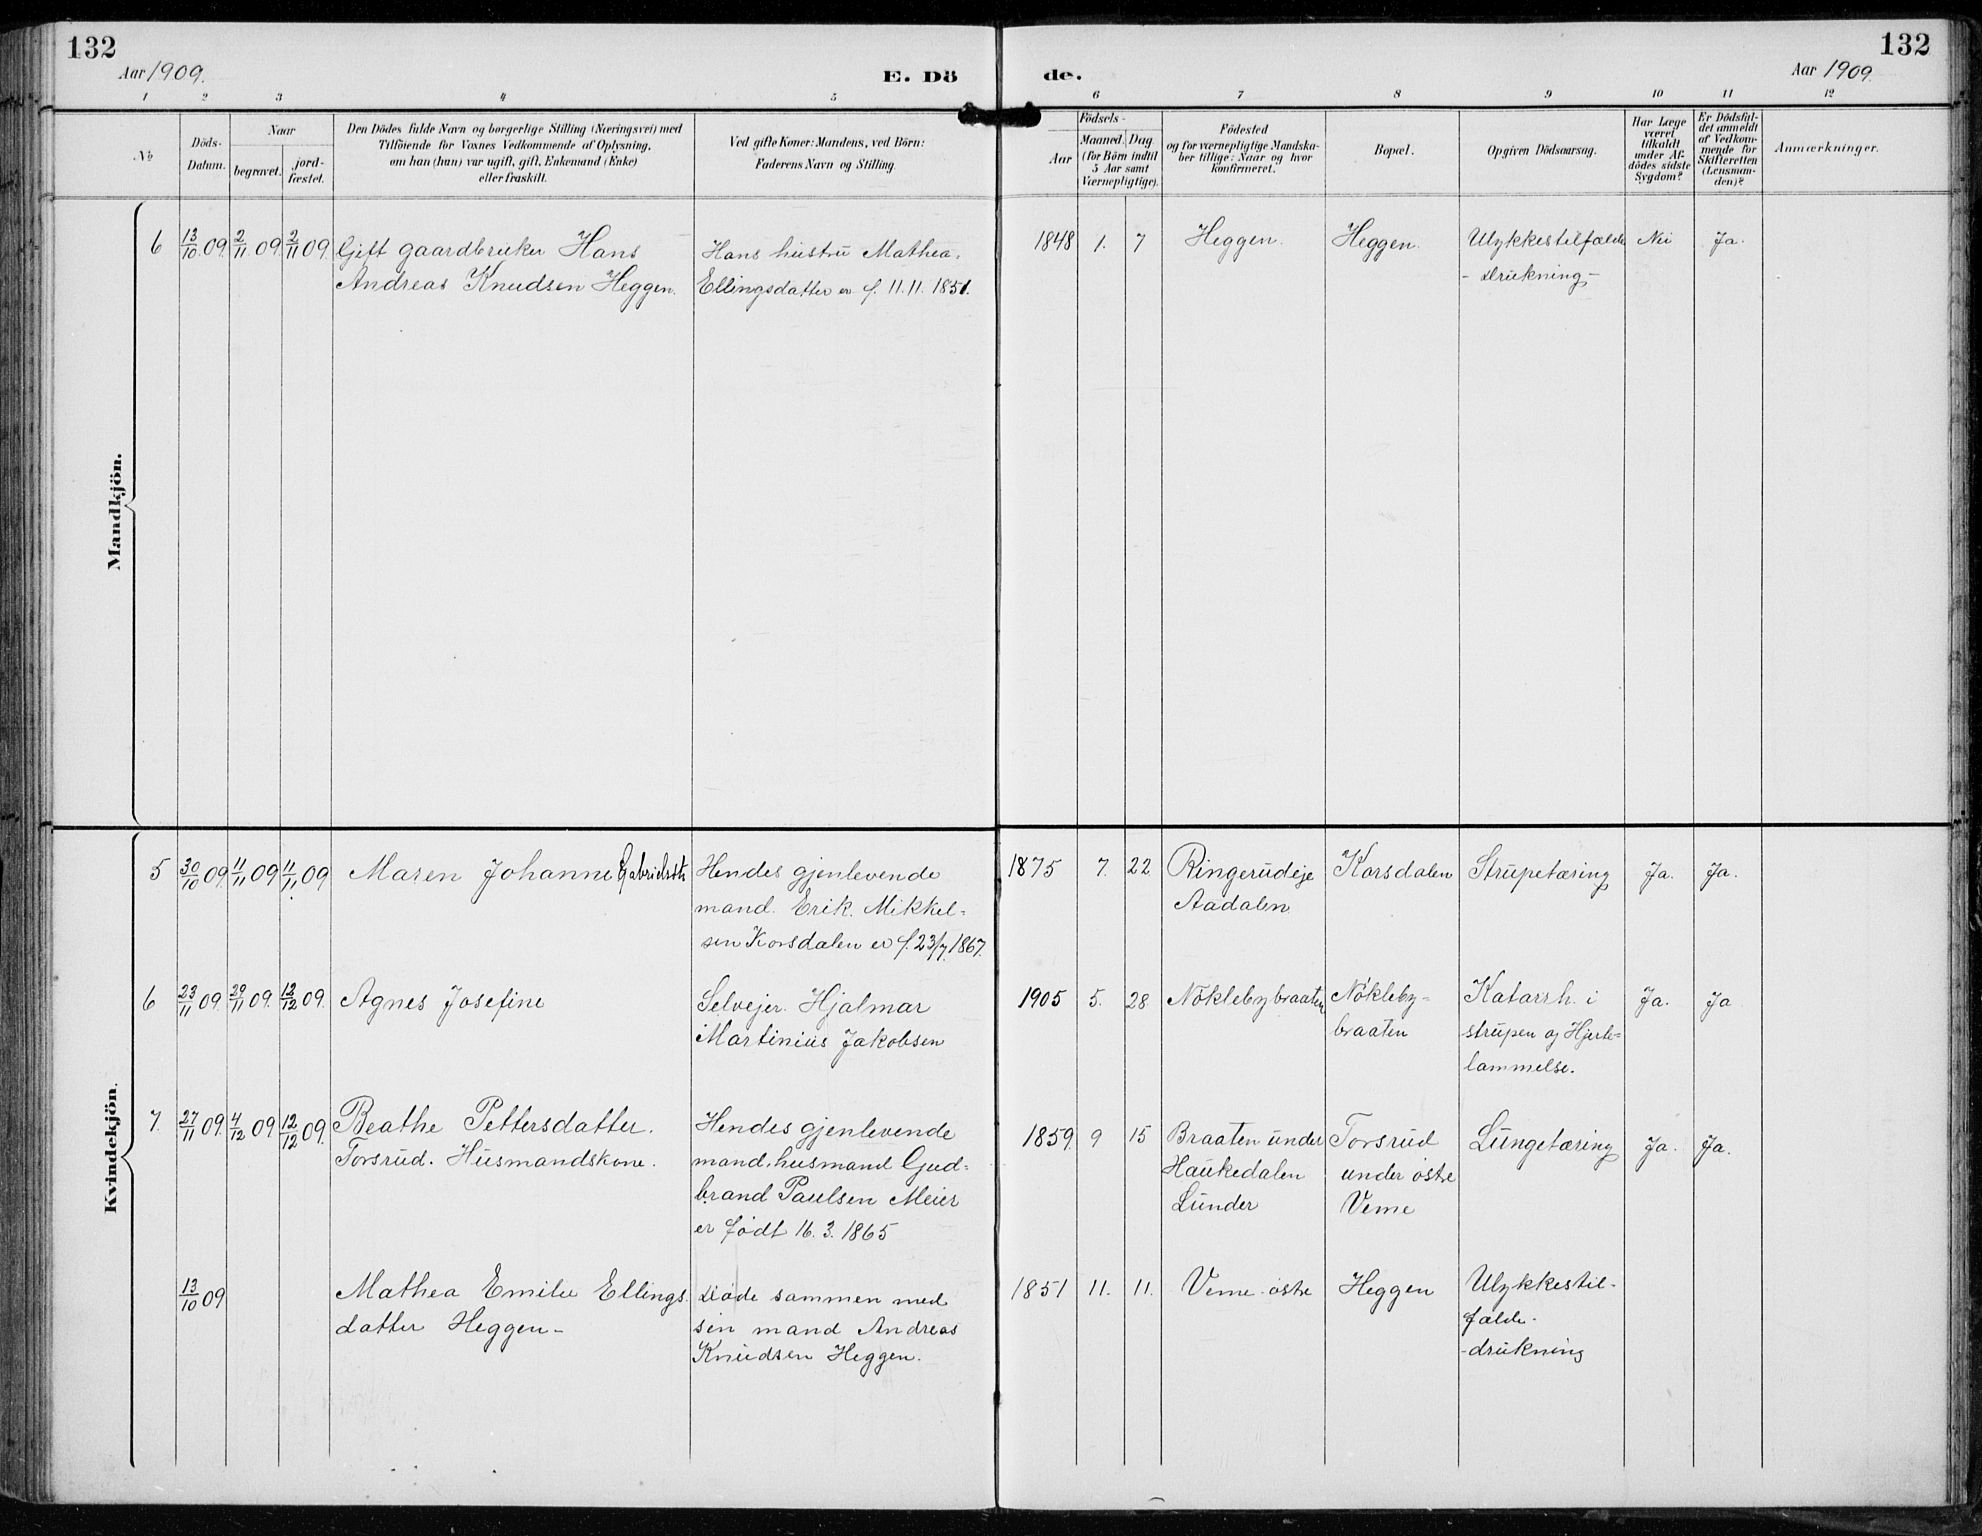 132
Aar 1909.
E. Dö
de.
132
Aar 1909.
1 2 3 4 5 6 7 8 9 10 11 12
No
Döds-
Datum.
Naar
begravet.
jord-
fæstet.
Den Dödes fulde Navn og borgerlige Stilling (Næringsvei) med
Tilföiende for Voxnes Vedkommende af Oplysning,
om han (hun) var ugift, gift, Enkemand (Enke)
eller fraskilt.
Ved gifte Koner: Mandens, ved Börn:
Faderens Navn og Stilling.
Födsels-
Aar
Maaned. Dag
(for Börn indtil
5 Aar samt
Værnepligtige).
Födested
og for værnepligtige Mandska-
ber tillige: Naar og hvor
konfirmeret.
Bopæl.
Opgiven Dödsaarsag.
Har Læge
været
tilkaldt
under Af-
dödes sidste
Sygdom?
Er Dödsfal-
det anmeldt
af Vedkom-
mende for
Skifteretten
(Lensman-
den)?
Anmærkninger.
Mandkjön.
6 13/10 09. 2/11 09. 2/11 09. Gift gaardbruker Hans
Andreas Knudsen Heggen.
Hans hustru Mathea
Ellingsdatter er f. 11.11. 1851.
1848 1. 7 Heggen. Heggen. Ulykkestilfælde Nei Ja.
- Drukning -
Kvindekjön.
5 30/10 09. 11/11 09 11/11 09 Maren Johanne Gabrielsdtr
Hendes gjenlevende
mand. Erik. Mikkel-
sen Korsdalen er f. 23/7. 1867.
1875 7. 22 Ringerudeje Korsdalen Strupetæring Ja. Ja.
Aadalen
6 23/11 09. 29/11 09. 12/12 09. Agnes Josefine
Selvejer. Hjalmar
Martinius Jakobsen
1905 5. 28 Nöklebybraaten Nökleby- Katarrh. i Ja. Ja
braaten strupen og Hjerte-
lammelse.
7. 27/11 09. 4/12 09 12/12 09. Beathe Pettersdatter.
Torsrud. Husmandskone.
Hendes gjenlevende
mand, husmand Gud-
brand Paulsen Meier
er födt 16. 3. 1865
1859. 9 15 Braaten under Torsrud Lungetæring Ja. Ja.
Haukedalen under östre
Lunder Veme
13/10 09 Mathea Emilie Ellings
datter Heggen -
Döde sammen med
sin mand Andreas
Knudsen Heggen.
1851 11. 11. Veme östre Heggen Ulykkestil-
fælde-
- drukning